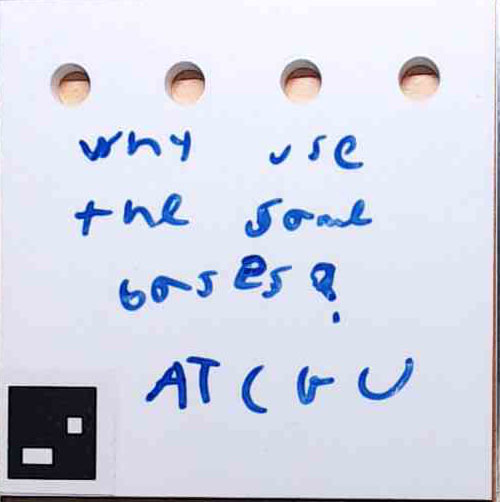 why use
the same
bases?
ATCGU